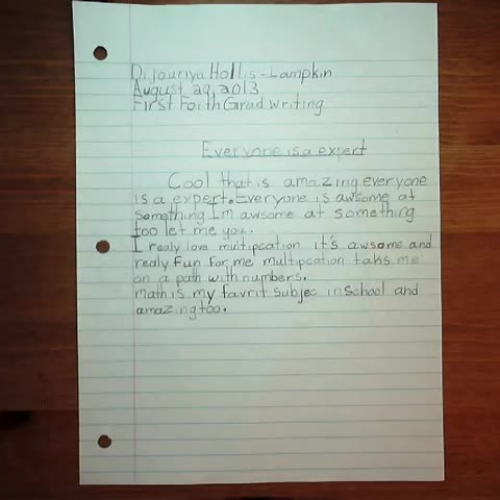 Dijouriya Hollis-Lampkin
August 29, 2013
First Forth Grad writing
Everyone is a expert
Cool that is amazing everyone
is a expert. Everyone is awsome at
something I'm awsome at something
too let me you.
I realy love multipcation it's awsome and
realy fun for me multipcation taks me
on a path with numbers.
math is my favrit subjec in school and
amazing too.